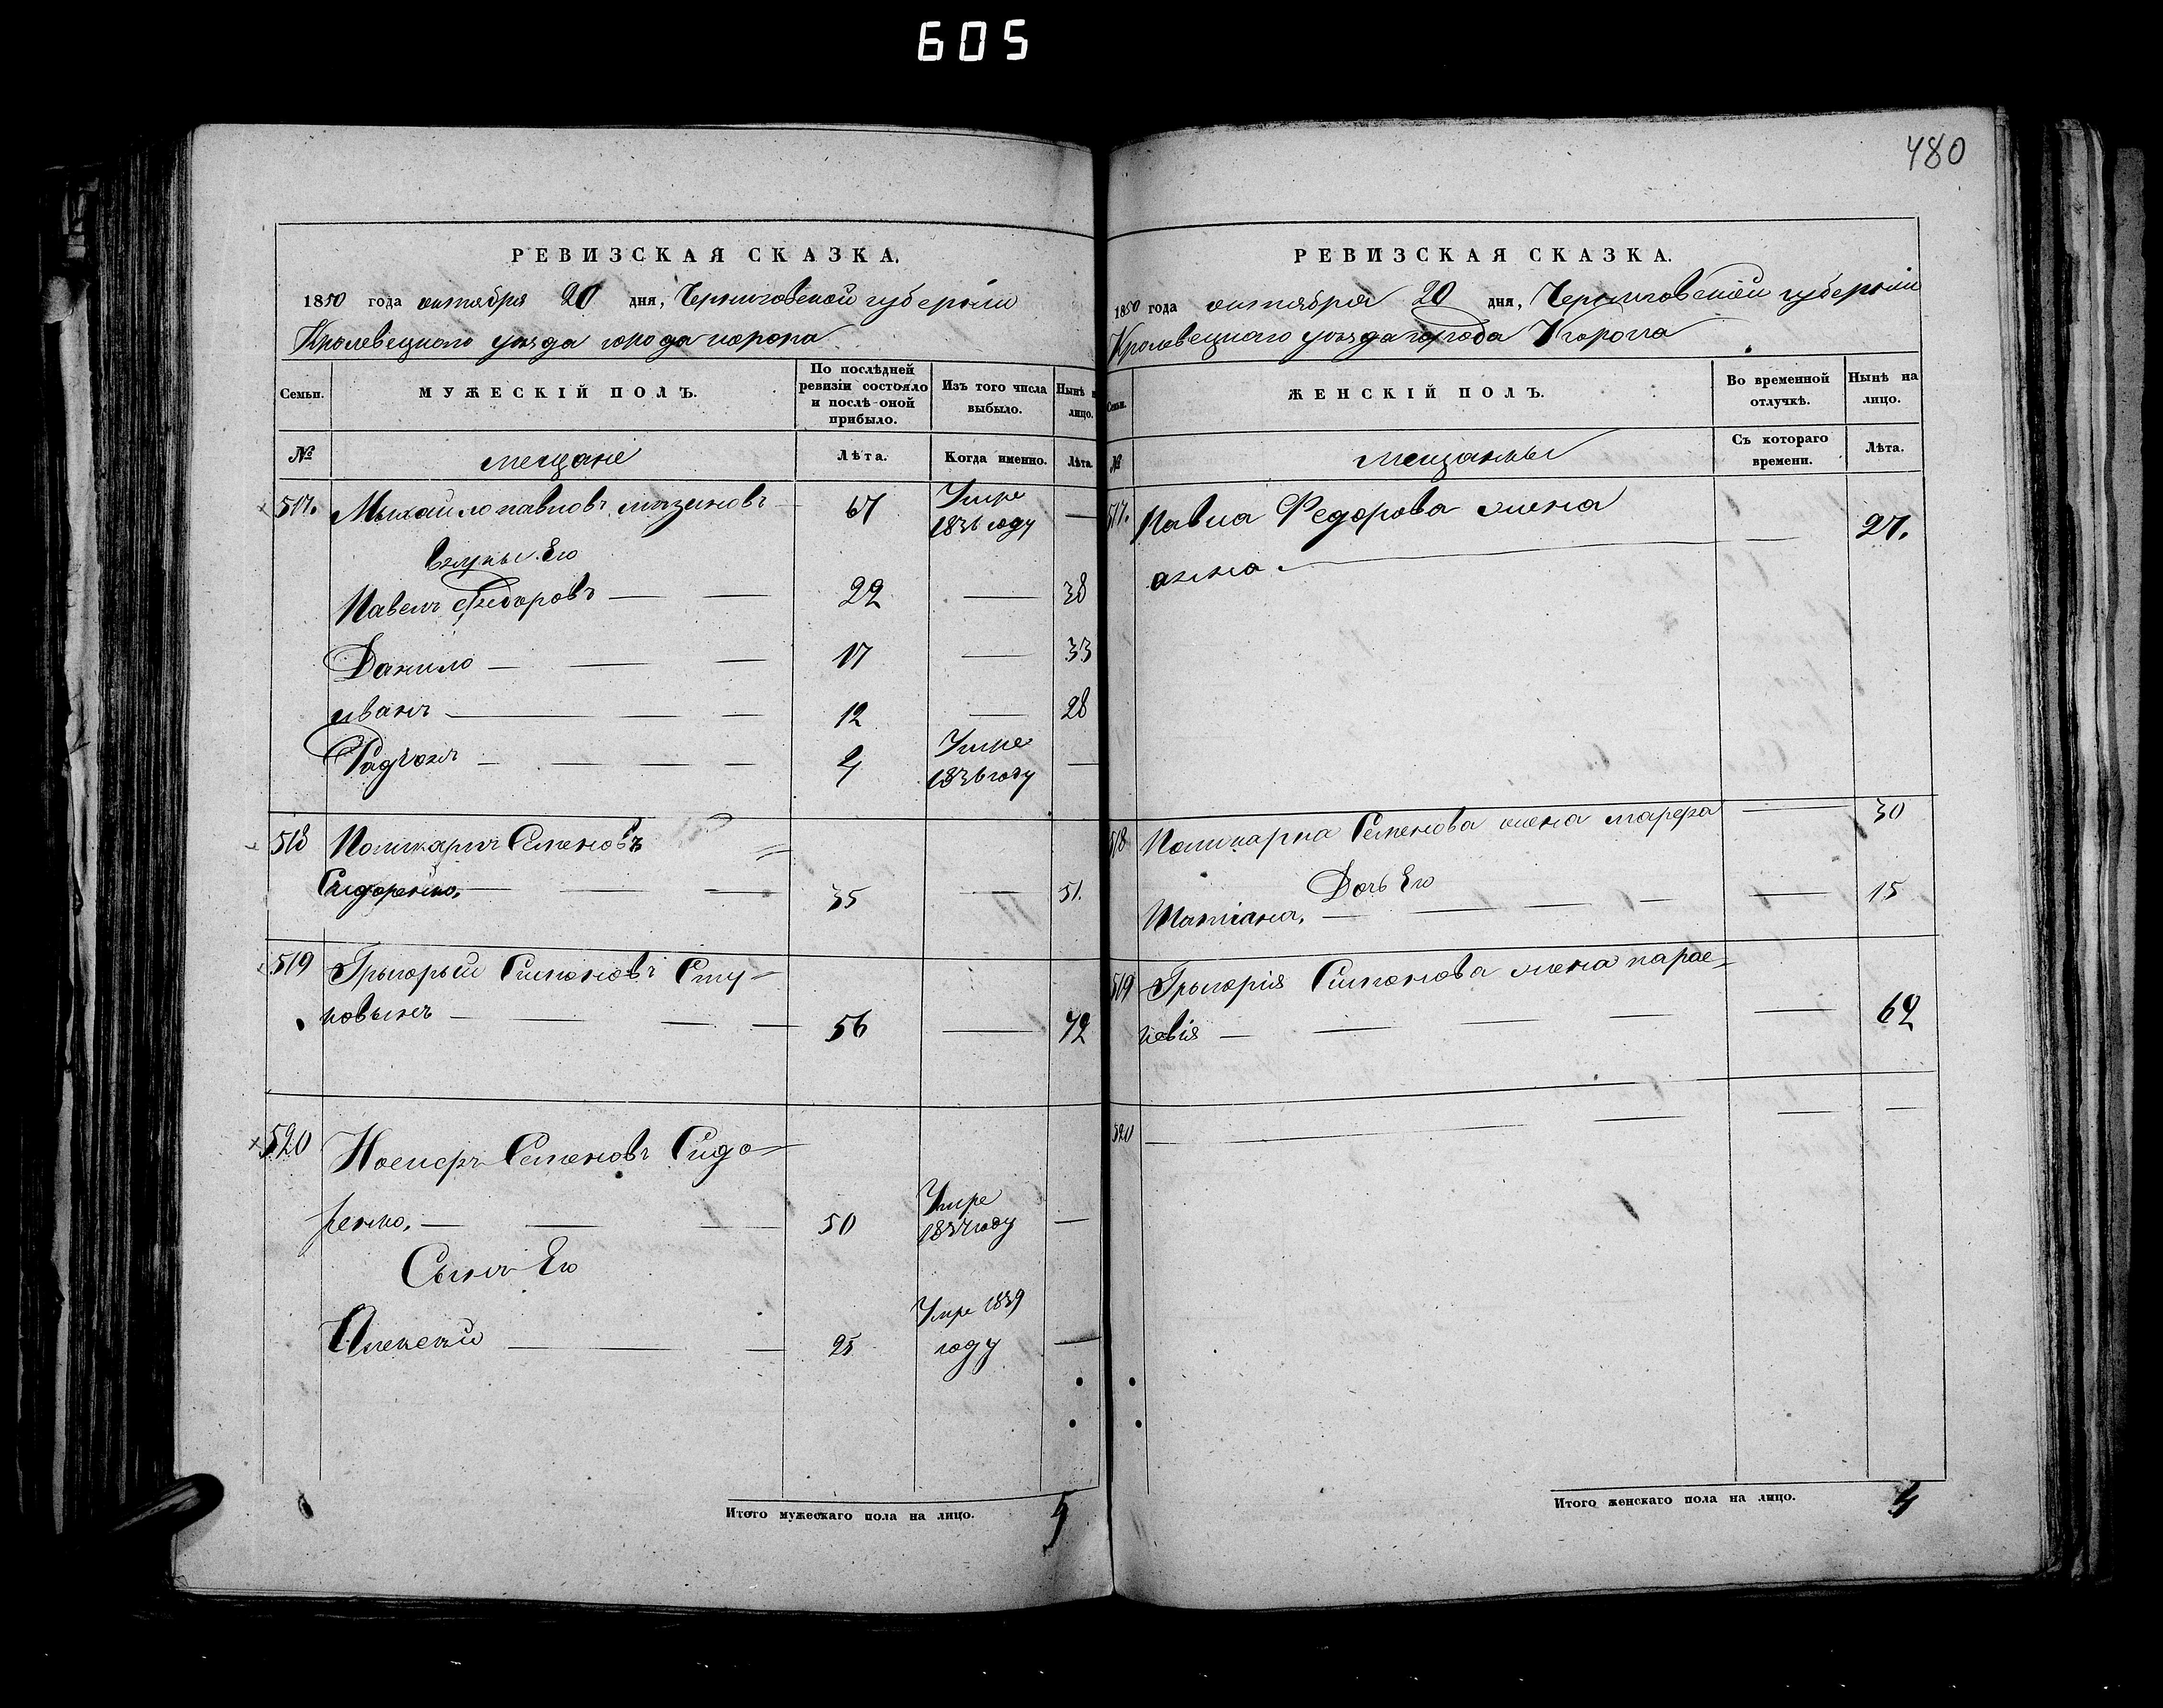 605
480
РЕВИЗСКАЯ СКАЗКА.
1850 года октября 20 дня, Черниговской губерніи
Кролевецкаго уезда города коропа
Семьи.
МУЖЕСКІЙ ПОЛЪ.
По послѣдней ревизіи состояло и послѣ оной прибыло.
Изъ того числа выбыло.
Нынѣ на лицо.
№
мещане
Лѣта.
Когда именно.
Лѣта.
517. Михайло павловъ 67 Умре 1836 году —
Внуки Его
Павелъ Федоровъ — — 22 — 38
Данило — — — 17 — 33
иванъ — — — 12 — 28
Родіонъ — — — — 4 Умре 1836 году —
518 Поликарпъ Семеновъ
Сидоренко, — — — 35 — 51.
519 Грыгорый Симоновъ Сту-
ковынъ — — — — 56 — 72
520 Семеновъ Сидо-
ренко, — — — 50 Умре 1837 году —
Сынъ Его
Алексей — — 25 Умре 1839 году —
Итого мужескаго пола на лицо. 5
РЕВИЗСКАЯ СКАЗКА.
1850 года октября 20 дня, Черниговской губерніи
Кролевецкаго уезда города Коропа
Семьи.
ЖЕНСКІЙ ПОЛЪ.
Во временной отлучкѣ.
Нынѣ на лицо.
№
мещанки
Съ котораго времени.
Лѣта.
517. Павла Федорова жена
анна. — — 27.
518 Поликарпа Семенова жена марфа — 30
Дочь Его
Татіана, — — — — — 15
519 Грыгорія Симонова жена парас-
кевія — — — — — 62
520 — — — —
Итого женскаго пола на лицо. 4